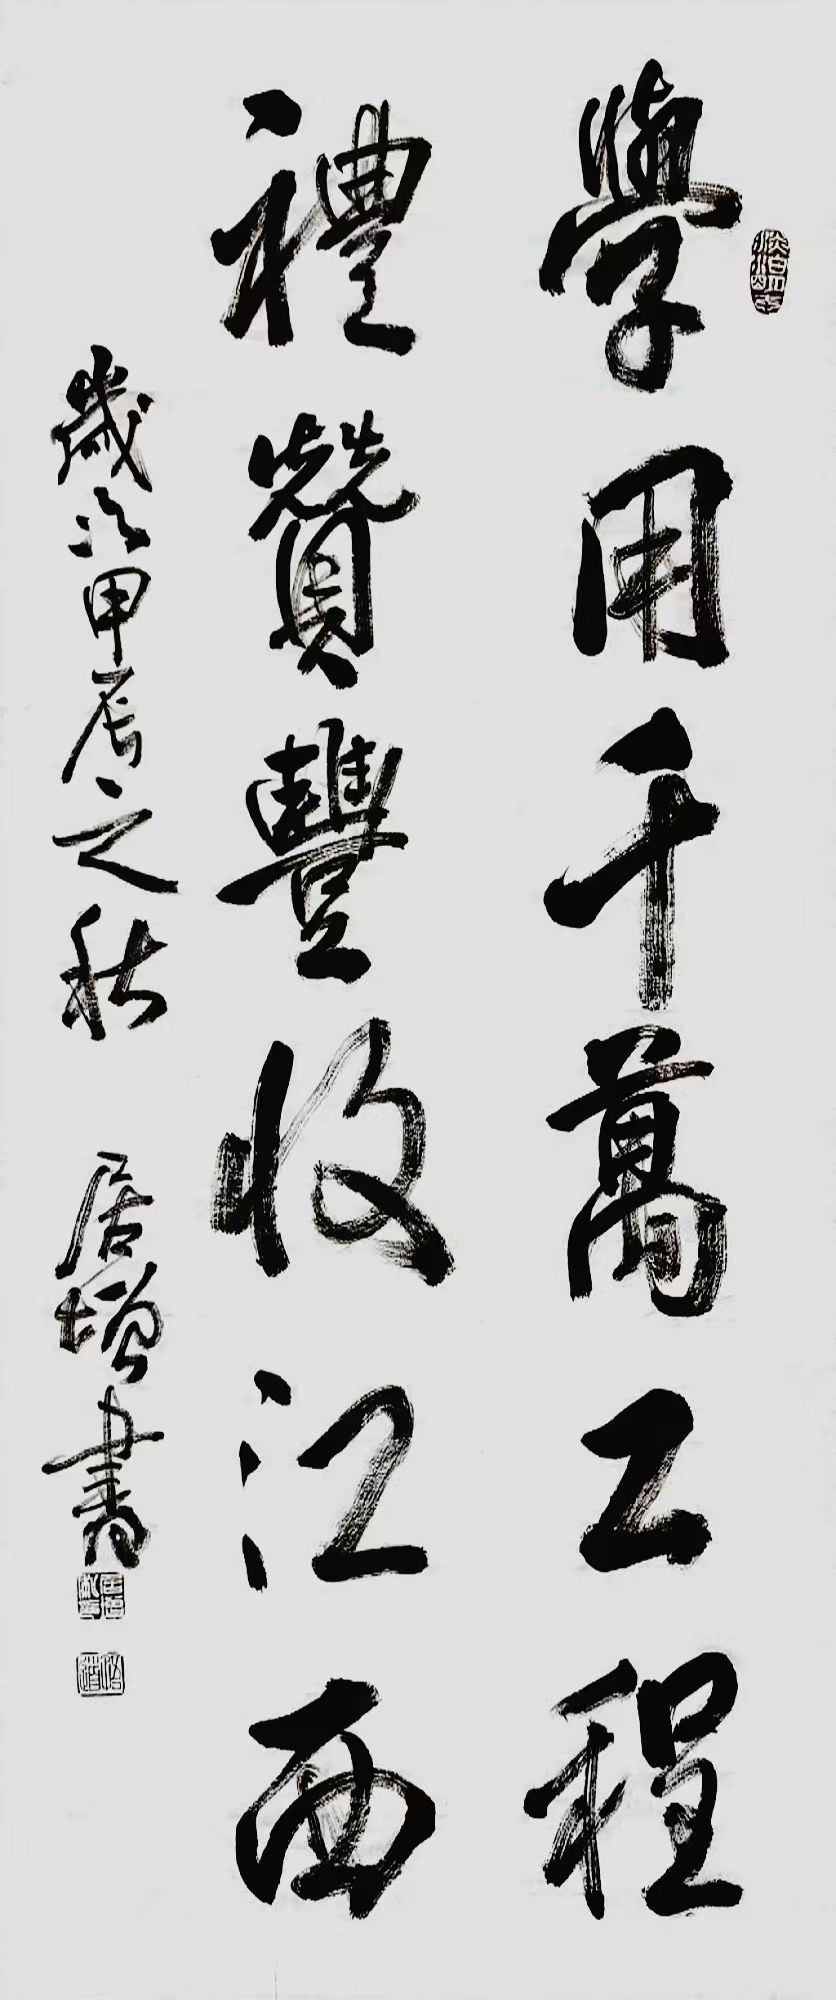 學用千萬工程
禮贊豐收江西
歲次甲辰之秋 居增書